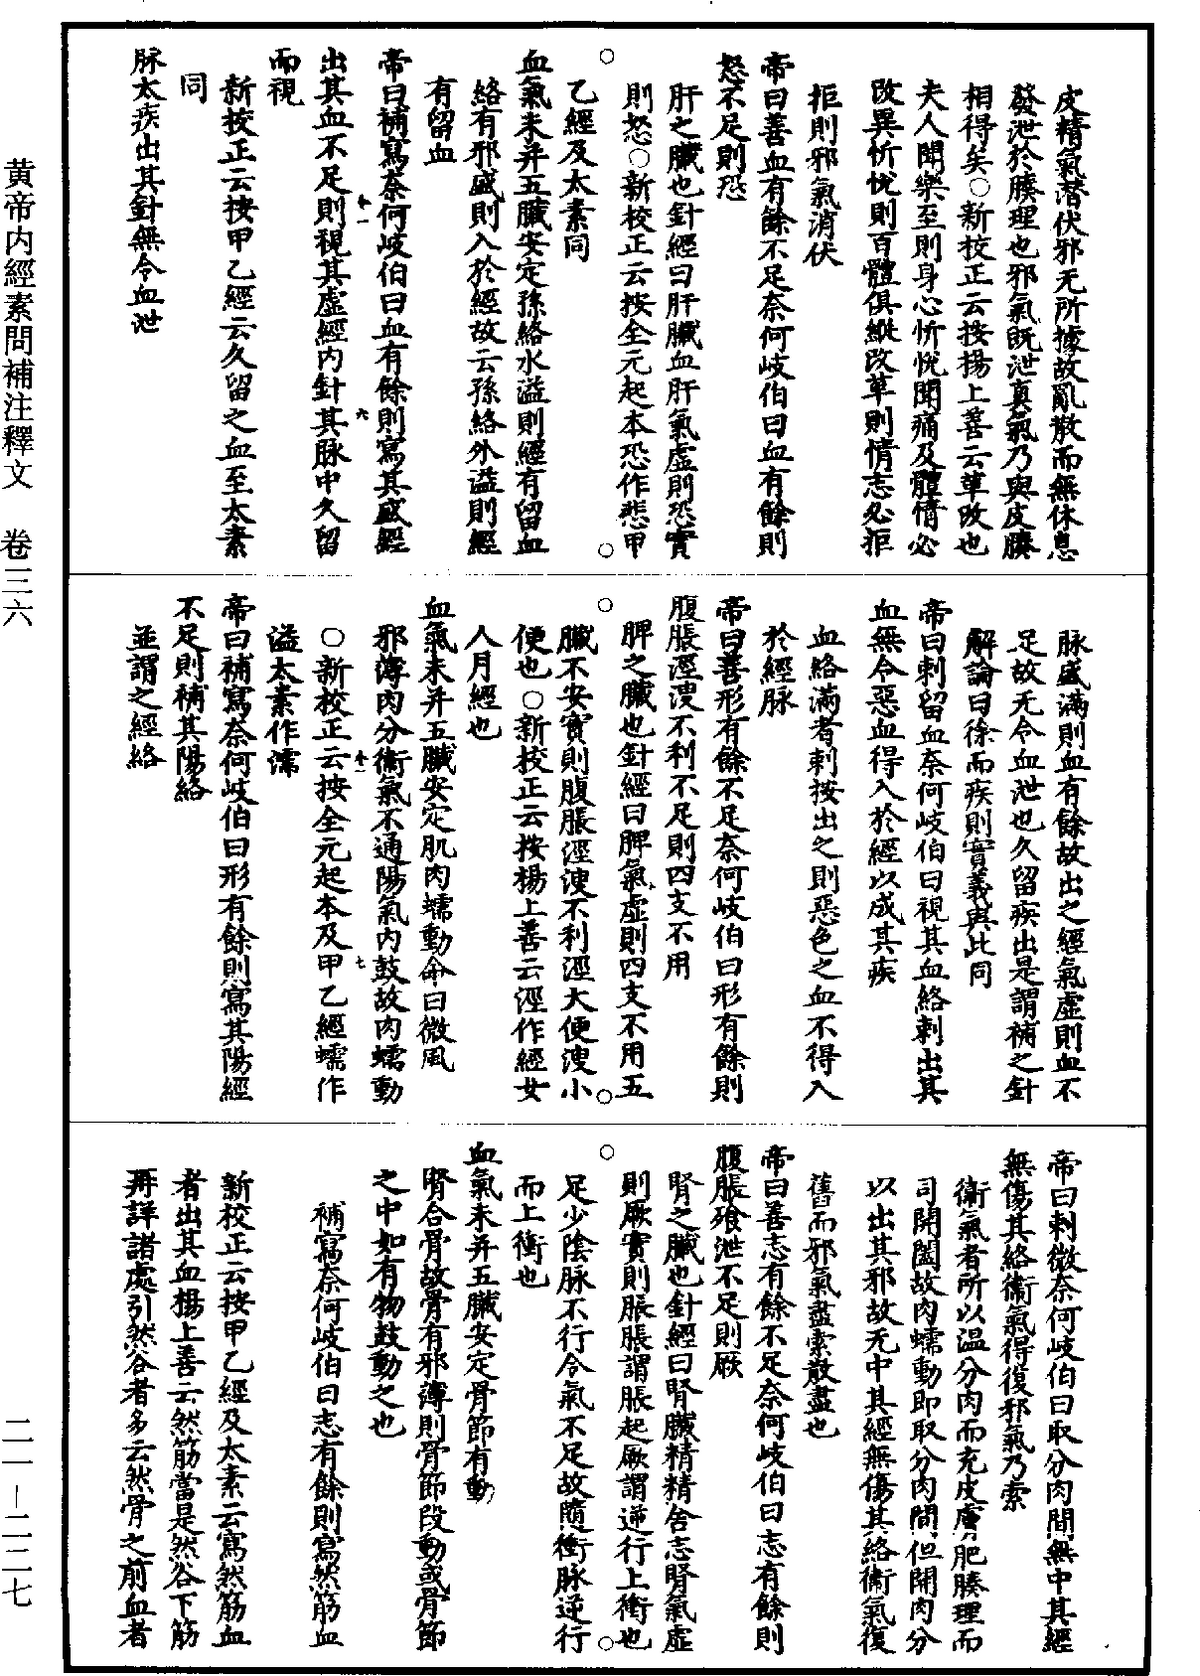 皮精氣潛伏邪无所據故亂散而無休息
發泄於腠理也邪氣既泄真氣乃與皮腠
相得矣○新校正云按楊上善云革改也
夫人聞樂至則身心忻悅聞痛及體情必
改異忻悅則百體俱縱改革則情志必拒
拒則邪氣消伏
帝曰善血有餘不足奈何岐伯曰血有餘則
怒不足則恐
肝之臟也針經曰肝臟血肝氣虛則恐實
則怒○新校正云按全元起本恐作悲甲
乙經及太素同
血氣未并五臟安定孫絡水溢則經有留血
絡有邪盛則入於經故云孫絡外溢則經
有留血
帝曰補寫奈何岐伯曰血有餘則寫其盛經
出其血不足則視其虛經內針其脉中久留
而視
新校正云按甲乙經云久留之血至太素
同
脉太疾出其針無令血泄
脉盛滿則血有餘故出之經氣虛則血不
足故无令血泄也久留疾出是謂補之針
解論曰徐而疾則實義與此同
帝曰刺留血奈何岐伯曰視其血絡刺出其
血無令惡血得入於經以成其疾
血絡滿者刺按出之則惡色之血不得入
於經脉
帝曰善形有餘不足奈何岐伯曰形有餘則
腹脹涇溲不利不足則四支不用
脾之臟也針經曰脾氣虛則四支不用五
臟不安實則腹脹涇溲不利涇大便溲小
便也○新校正云按楊上善云涇作經女
人月經也
血氣未并五臟安定肌肉蠕動命曰微風
邪薄肉分衛氣不通陽氣內鼓故肉蠕動
○新校正云按全元起本及甲乙經蠕作
溢太素作濡
帝曰補寫奈何岐伯曰形有餘則寫其陽經
不足則補其陽絡
並謂之經絡
帝曰刺微奈何岐伯曰取分肉間無中其經
無傷其絡衛氣得復邪氣乃索
衛氣者所以溫分肉而充皮膚肥腠理而
司開闔故肉蠕動即取分肉間但開肉分
以出其邪故无中其經無傷其絡衛氣復
舊而邪氣盡索散盡也
帝曰善志有餘不足奈何岐伯曰志有餘則
腹脹飱泄不足則厥
腎之臟也針經曰腎臟精精舍志腎氣虛
則厥實則脹脹謂脹起厥謂逆行上衝也
足少陰脉不行令氣不足故隨衝脉逆行
而上衝也
血氣未并五臟安定骨節有動
腎合骨故骨有邪薄則骨節段動或骨節
之中如有物鼓動之也
補寫奈何岐伯曰志有餘則寫然筋血
新校正云按甲乙經及太素云寫然筋血
者出其血楊上善云然筋當是然谷下筋
再詳諸處引然谷者多云然骨之前血者
黄帝内經素問補注釋文 卷三六
二一－二二七